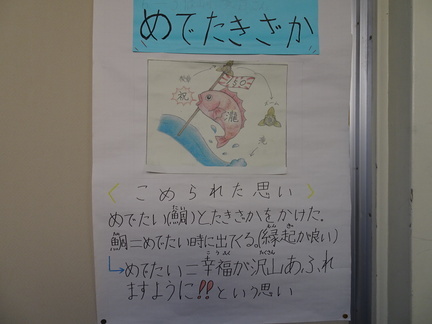 めでたきざか
祝
瀧
＜ こめられた思い ＞
めでたい(鯛)とたきざかをかけた.
鯛＝めでたい時に出てくる。(縁起が良い)
↳めでたい＝幸福が沢山あふれ
ますように!!という思い